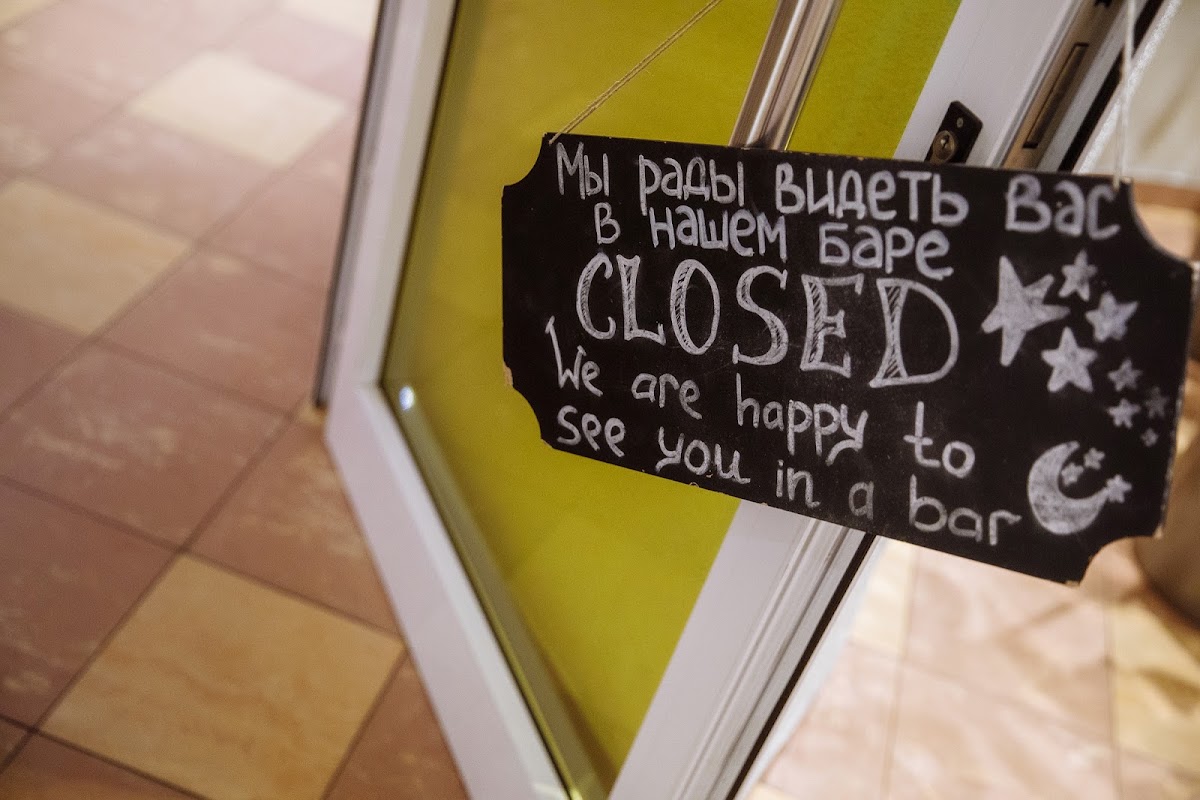 Мы рады видеть Вас
в нашем баре
CLOSED
We are happy to
see you in a bar